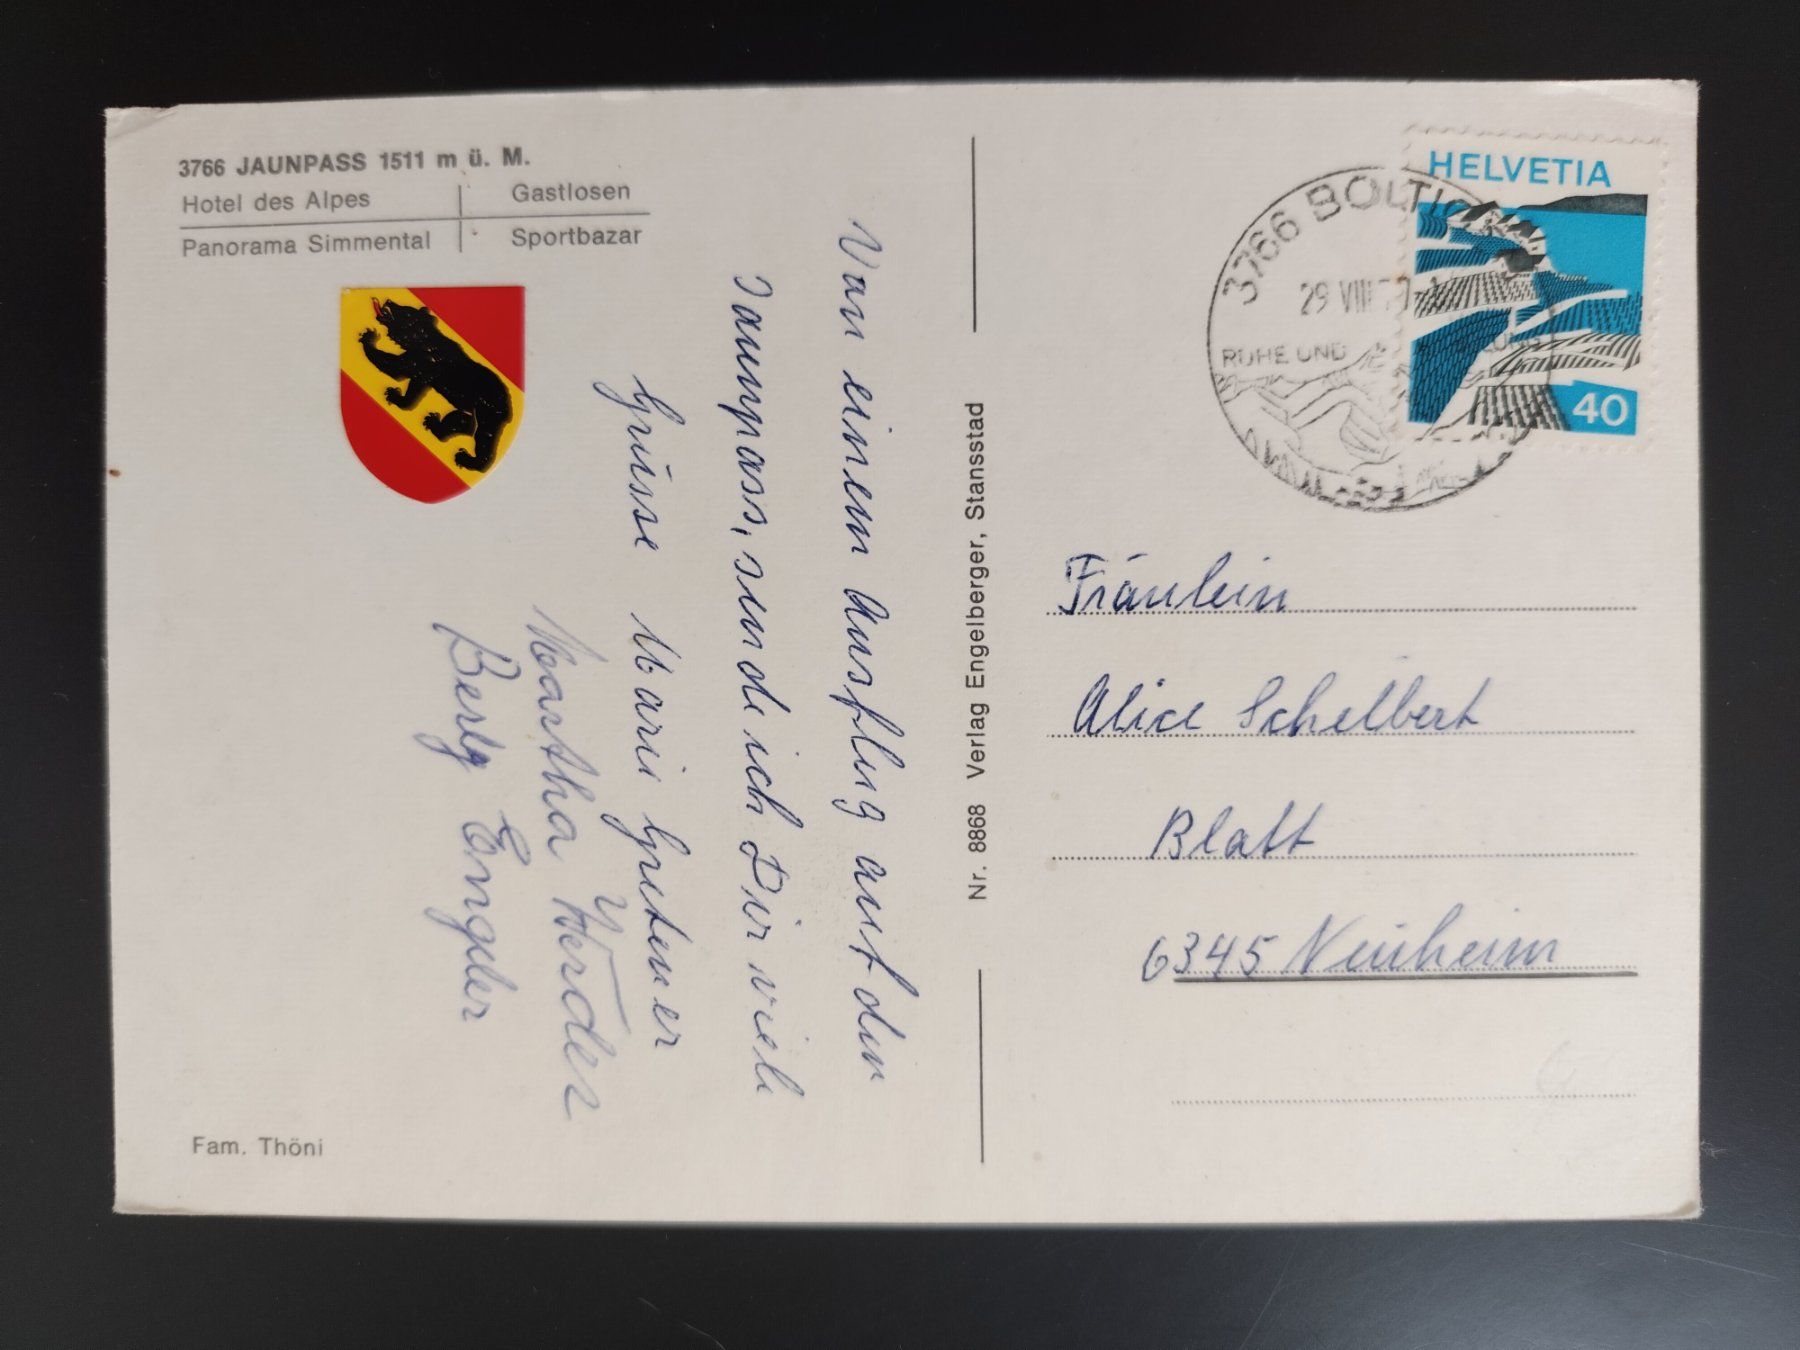 3766 JAUNPASS 1511 m ü. M.
Hotel des Alpes
Gastlosen
Panorama Simmental
Sportbazar
Von einem Ausflug auf den
Jaunpass, sende ich Dir viele
Grüsse Mari
Martha
Berty Engeler
Fam. Thöni
Nr. 8868 Verlag Engelberger, Stansstad
HELVETIA
40
3766 BOLTIG
29 VIII
RUHE UND
Fräulein
Alice Schelbert
Blatt
6345 Neuheim